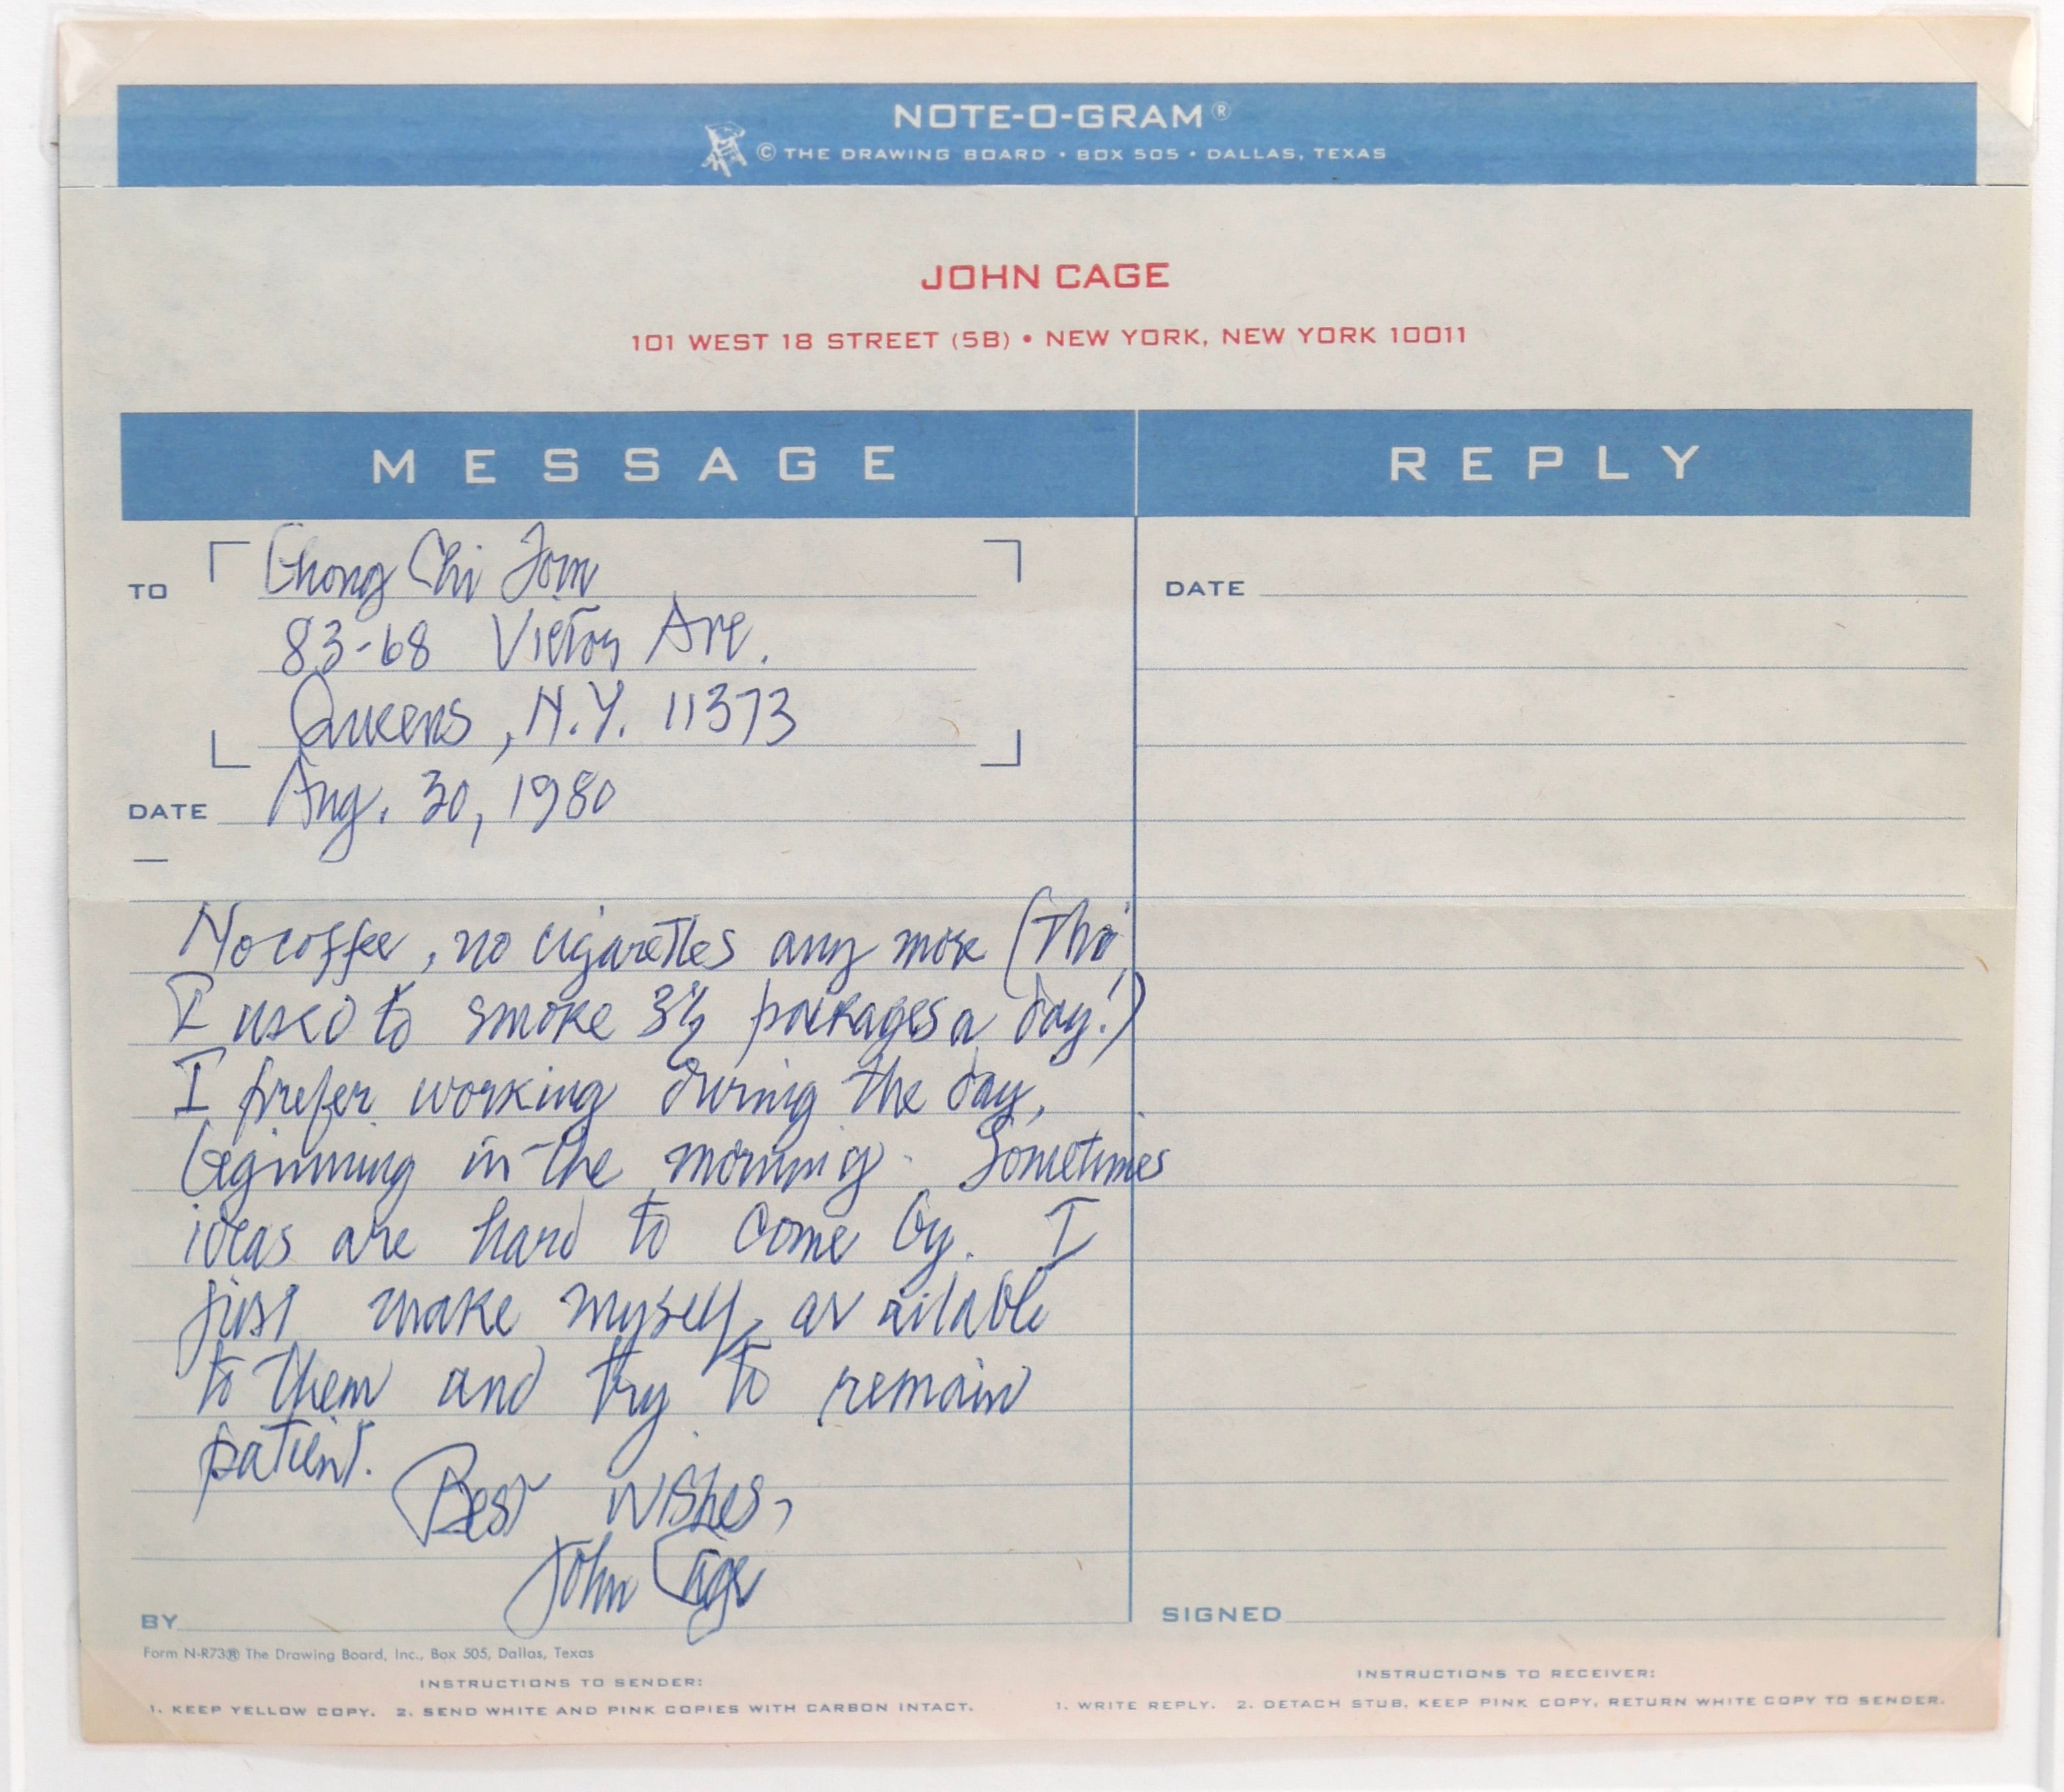 NOTE-O-GRAM®
© THE DRAWING BOARD • BOX 505 • DALLAS, TEXAS
JOHN CAGE
101 WEST 18 STREET (5B) • NEW YORK, NEW YORK 10011
MESSAGE
TO
Chong Chi Tom
83-68 Vietor Ave.
Queens, N.Y. 11373
DATE Aug. 30, 1980
No coffee, no cigarettes any more (tho'
I used to smoke 3½ packages a day!)
I prefer working during the day,
beginning in the morning. Sometimes
ideas are hard to come by. I
just make myself available
to them and try to remain
patient.
Best wishes,
John Cage
BY
REPLY
DATE
SIGNED
Form N-R73® The Drawing Board, Inc., Box 505, Dallas, Texas
INSTRUCTIONS TO SENDER:
1. KEEP YELLOW COPY. 2. SEND WHITE AND PINK COPIES WITH CARBON INTACT.
INSTRUCTIONS TO RECEIVER:
1. WRITE REPLY. 2. DETACH STUB, KEEP PINK COPY, RETURN WHITE COPY TO SENDER.